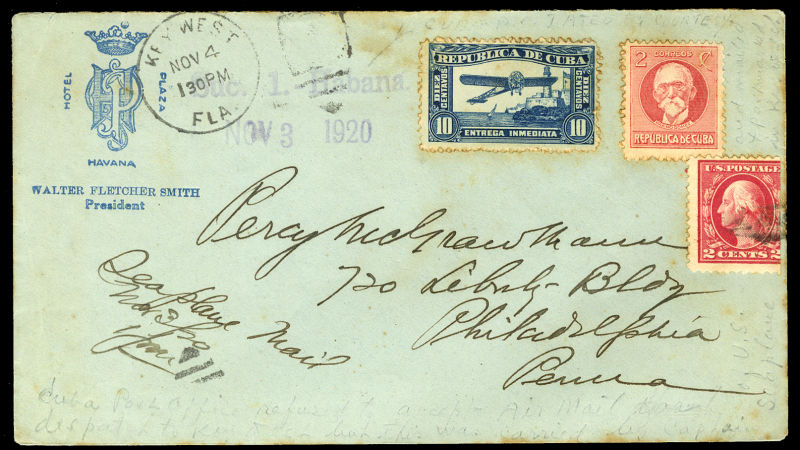 HOTEL
PLAZA
HP
HAVANA
WALTER FLETCHER SMITH
President
KEY WEST
NOV 4
130PM
FLA.
Suc. 1. Habana.
NOV 3 1920
REPUBLICA DE CUBA
DIEZ CENTAVOS
DIEZ CENTAVOS
10
ENTREGA INMEDIATA
10
2 CORREOS C
REPUBLICA DE CUBA
U.S. POSTAGE
2 CENTS 2
Percy McGraw Mann
720 Liberty Bldg
Philadelphia
Penna
Seaplane Mail
Nov 3/20
Cuba Post Office refused to accept Air Mail
dispatch to Key but this was carried by Captain
of U.S.
Seaplane